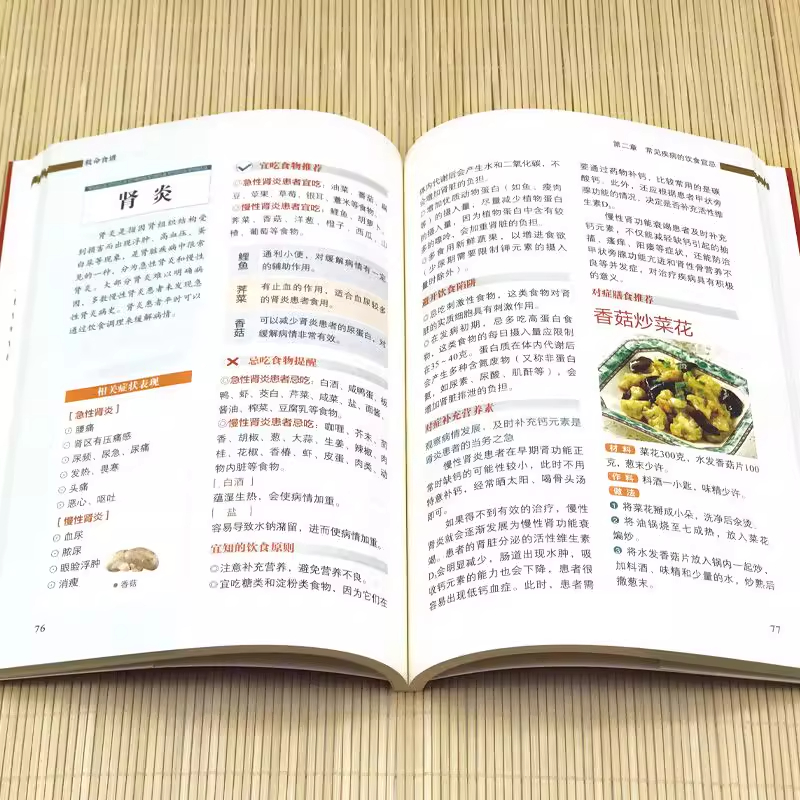 救命食谱
肾 炎
肾炎是指因肾组织结构受
到损害而出现浮肿、高血压、蛋
白尿等现象，是肾脏疾病中很常
见的一种，分为急性肾炎和慢性
肾炎。大部分肾炎难以明确病
因，多数慢性肾炎患者未发现急
性肾炎病史。肾炎患者平时可以
通过饮食调理来缓解病情。
相关症状表现
[急性肾炎]
⊙腰痛
⊙肾区有压痛感
⊙尿频、尿急、尿痛
⊙发热、畏寒
⊙头痛
⊙恶心、呕吐
[慢性肾炎]
⊙血尿
⊙脓尿
⊙眼睑浮肿
⊙消瘦
●香菇
76
宜吃食物推荐
◎急性肾炎患者宜吃：油菜、番茄、豌
豆、苹果、草莓、银耳、薏米等食物。
◎慢性肾炎患者宜吃：鲤鱼、胡萝卜、
荠菜、香菇、洋葱、橙子、西瓜、山
楂、葡萄等食物。
鲤鱼
通利小便，对缓解病情有一定
的辅助作用。
荠菜
有止血的作用，适合血尿较多
的肾炎患者食用。
香菇
可以减少肾炎患者的尿蛋白，对
缓解病情非常有效。
忌吃食物提醒
◎急性肾炎患者忌吃：白酒、咸鸭蛋、板
鸭、虾、茭白、芹菜、咸菜、盐、面酱、
酱油、榨菜、豆腐乳等食物。
◎慢性肾炎患者忌吃：咖喱、芥末、茴
香、胡椒、葱、大蒜、生姜、辣椒、肉
桂、花椒、香椿、虾、皮蛋、肉类、动
物内脏等食物。
[白酒]
蕴湿生热，会使病情加重。
[盐]
容易导致水钠潴留，进而使病情加重。
宜知的饮食原则
◎注意补充营养，避免营养不良。
◎宜吃糖类和淀粉类食物，因为它们在
第二章 常见疾病的饮食宜忌
体内代谢后会产生水和二氧化碳，不
会增加肾脏的负担。
◎增加优质动物蛋白（如鱼、瘦肉
等）的摄入量，尽量减少植物蛋白
的摄入量，因为植物蛋白中含有较
多的嘌呤，会加重肾脏的负担。
◎多食用新鲜蔬果，以增进食欲
（少尿期需要限制钾元素的摄入
量时除外）。
避开饮食陷阱
◎忌吃刺激性食物，这类食物对肾
脏的实质细胞具有刺激作用。
◎在发病初期，忌多吃高蛋白食
物，这类食物的每日摄入量应限制
在35～40克。蛋白质在体内代谢后
会产生多种含氮废物（又称非蛋白
氮，如尿素、尿酸、肌酐等），会
增加肾脏排泄的负担。
对症补充营养素
观察病情发展，及时补充钙元素是
肾炎患者的当务之急
慢性肾炎患者在早期肾功能正
常时缺钙的可能性较小，此时不用
特意补钙，经常晒太阳、喝骨头汤
即可。
如果得不到有效的治疗，慢性
肾炎就会逐渐发展为慢性肾功能衰
竭。患者的肾脏分泌的活性维生素
D₃会明显减少，肠道出现水肿，吸
收钙元素的能力也会下降，患者很
容易出现低钙血症。此时，患者需
要通过药物补钙，比较常用的是碳
酸钙。此外，还应根据患者甲状旁
腺功能的情况，决定是否补充活性维
生素D₃。
慢性肾功能衰竭患者及时补充
钙元素，不仅能减轻缺钙引起的抽
搐、瘙痒、阳痿等症状，还能防治
甲状旁腺功能亢进和肾性骨营养不
良等并发症，对治疗疾病具有积极
的意义。
对症膳食推荐
香菇炒菜花
材料 菜花300克，水发香菇片100
克，葱末少许。
作料 料酒一小匙，味精少许。
做法
1 将菜花掰成小朵，洗净后余烫。
2 将油锅烧至七成热，放入菜花
煸炒。
3 将水发香菇片放入锅内一起炒，
加料酒、味精和少量的水，炒熟后
撒葱末。
77